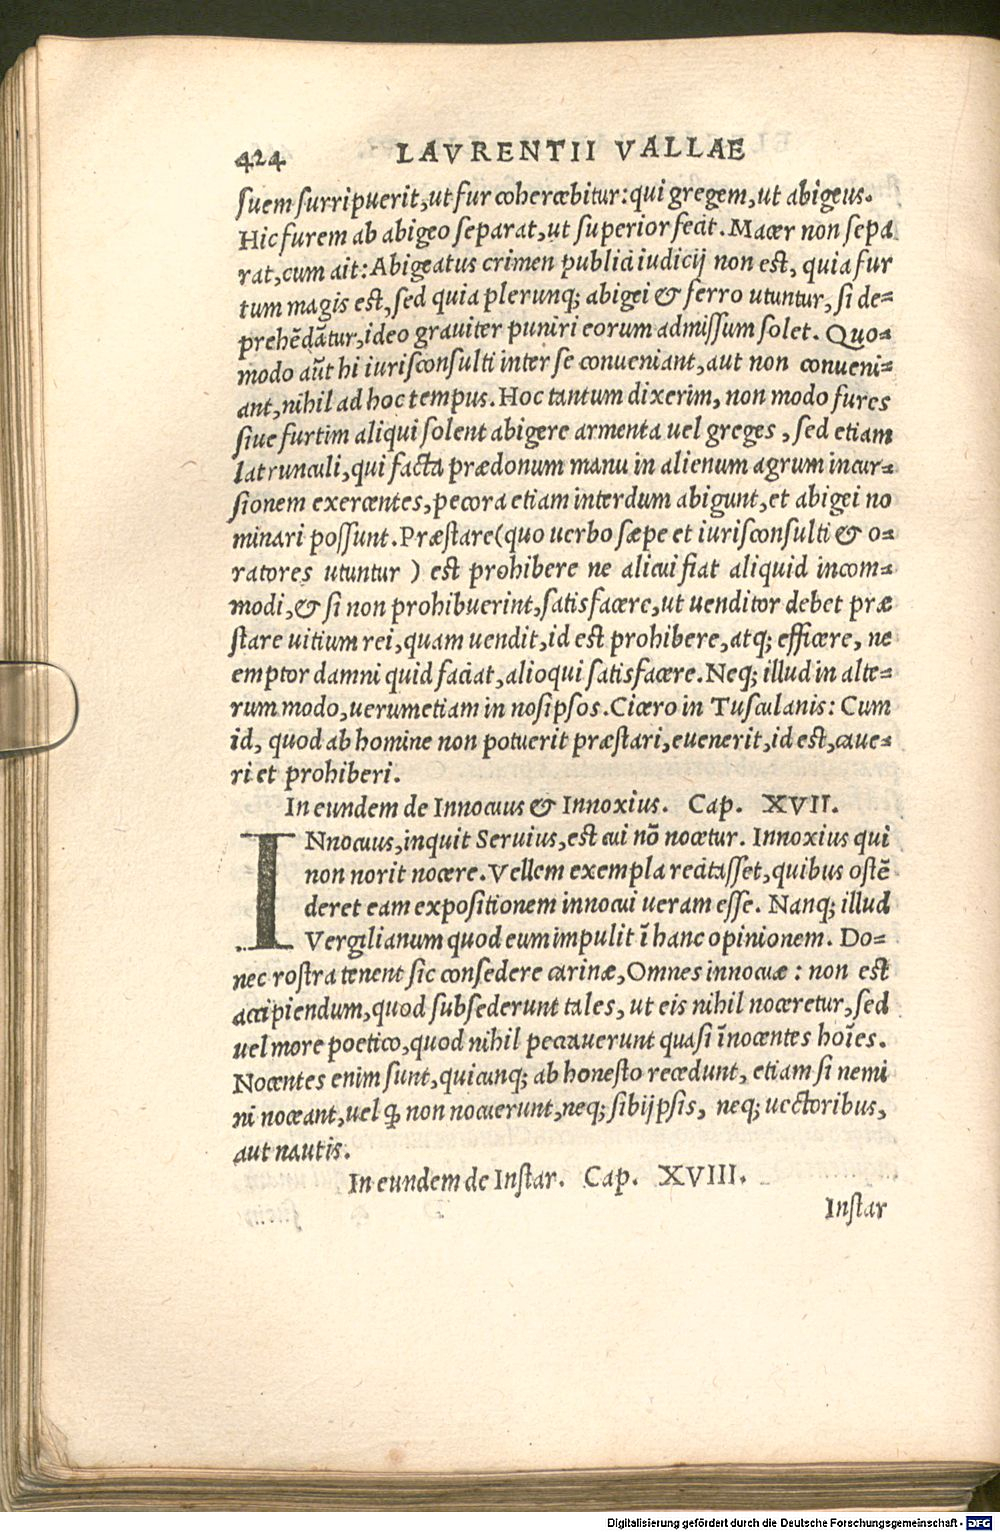 424 LAVRENTII VALLAE
suem surripuerit, ut fur coherœbitur: qui gregem, ut abigeus.
Hic furem ab abigeo separat, ut superior fecit. Macer non sepa
rat, cum ait: Abigeatus crimen publici iudicij non est, quia fur
tum magis est, sed quia plerunq; abigei & ferro utuntur, si de=
prehēdātur, ideo grauiter puniri eorum admissum solet. Quo=
modo aūt hi iurisconsulti inter se conueniant, aut non conueni=
ant, nihil ad hoc tempus. Hoc tantum dixerim, non modo fures
siue furtim aliqui solent abigere armenta uel greges, sed etiam
latrunculi, qui facta prædonum manu in alienum agrum incur=
sionem exercentes, pecora etiam interdum abigunt, et abigei no
minari possunt. Præstare (quo uerbo sæpe et iurisconsulti & o=
ratores utuntur) est prohibere ne alicui fiat aliquid incom=
modi, & si non prohibuerint, satisfacere, ut uenditor debet præ
stare uitium rei, quam uendit, id est prohibere, atq; efficere, ne
emptor damni quid faciat, alioqui satisfacere. Neq; illud in alte=
rum modo, uerumetiam in nosipsos. Cicero in Tusculanis: Cum
id, quod ab homine non potuerit præstari, euenerit, id est, caue=
ri et prohiberi.
In eundem de Innocuus & Innoxius. Cap. XVII.
INnocuus, inquit Seruius, est cui nō nocetur. Innoxius qui
non norit nocere. Vellem exempla recitasset, quibus ostē
deret eam expositionem innocui ueram esse. Nanq; illud
Vergilianum quod eum impulit ī hanc opinionem. Do=
nec rostra tenent sic consedere carinæ, Omnes innocuæ: non est
accipiendum, quod subsederunt tales, ut eis nihil noceretur, sed
uel more poetico, quod nihil peccauerunt quasi īnocentes hoīes.
Nocentes enim sunt, quicunq; ab honesto recedunt, etiam si nemi
ni noceant, uel ꝙ non nocuerunt, neq; sibijpsis, neq; uectoribus,
aut nautis.
In eundem de Instar. Cap. XVIII.
Instar
Digitalisierung gefördert durch die Deutsche Forschungsgemeinschaft - DFG